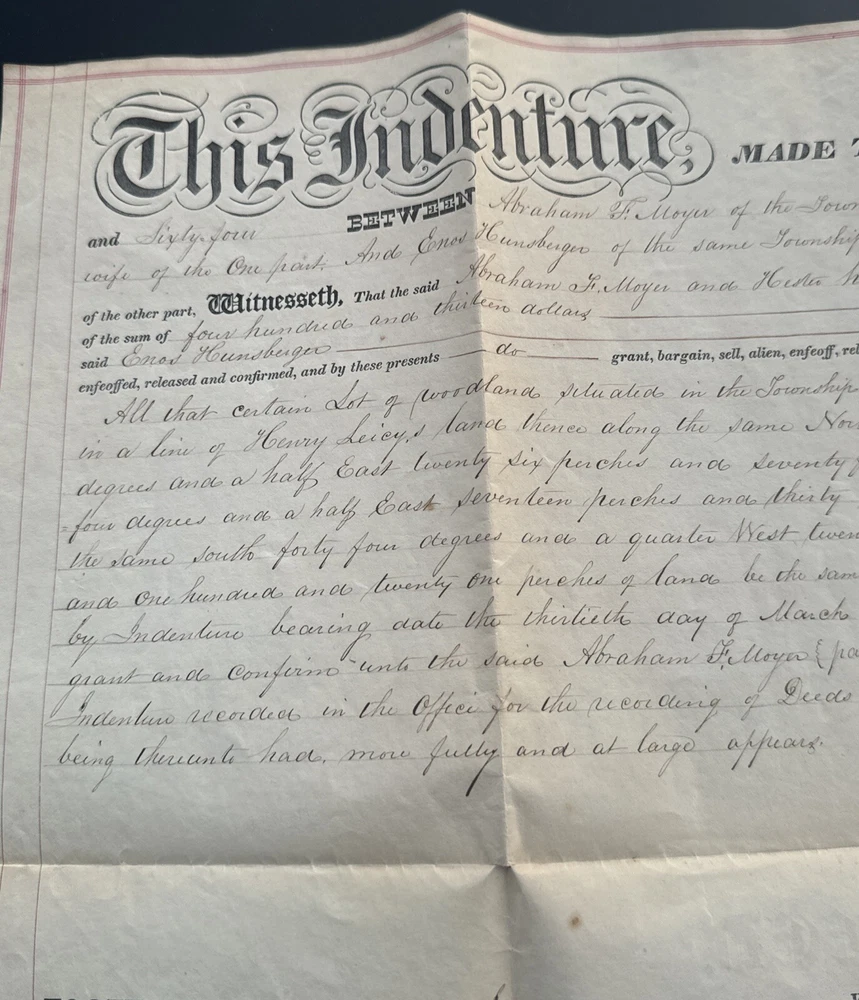 This Indenture, MADE
and Sixty-four BETWEEN Abraham F. Moyer of the Town
wife of the One part. And Enos Hunsberger of the same Township
of the other part, Witnesseth, That the said Abraham F. Moyer and Hester
of the sum of four hundred and thirteen dollars
said Enos Hunsberger
enfeoffed, released and confirmed, and by these presents do grant, bargain, sell, alien, enfeoff, rel
All that certain Lot of woodland situated in the Township
in a line of Henry Leicy,s land thence along the same Nor
degrees and a half East twenty six perches and seventy
=four degrees and a half East seventeen perches and thirty
the same south forty four degrees and a quarter West twen
and one hundred and twenty one perches of land be the sam
by Indenture bearing date the thirtieth day of March
grant and confirm unto the said Abraham F. Moyer { pa
Indenture recorded in the Office for the recording of Deeds
being thereunto had, more fully and at large appears.